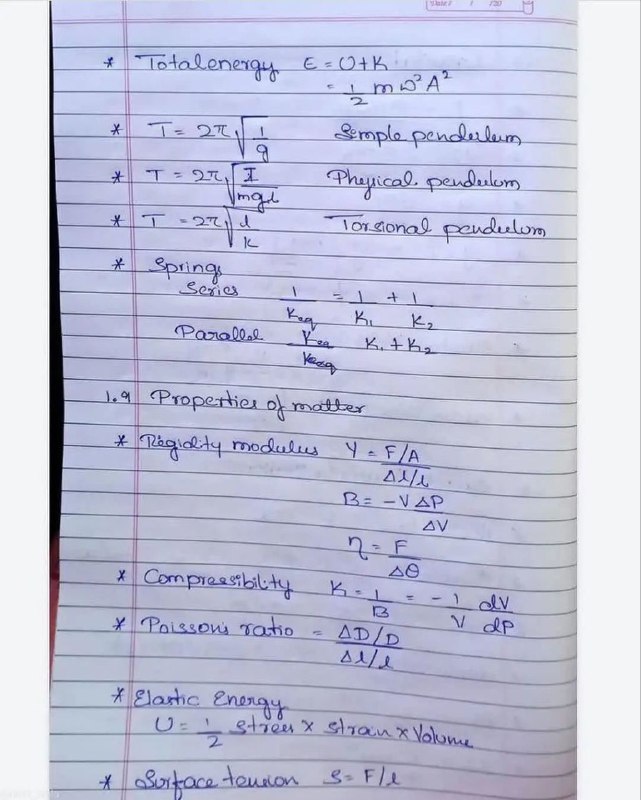 Date / / 20
* Total energy E = U+K
= 1/2 m ω² A²
* T = 2π √(1/g) Simple pendulum
* T = 2π √(I/mgl) Physical pendulum
* T = 2π √(l/k) Torsional pendulum
* Springs
Series 1/Keq = 1/K₁ + 1/K₂
Parallel K₁ + K₂
1.9 Properties of matter
* Rigidity modulus Y = F/A / Δl/l
B = -V ΔP/ΔV
η = F/Δθ
* Compressibility K = 1/B = - 1/V dV/dP
* Poisson's ratio = ΔD/D / Δl/l
* Elastic Energy
U = 1/2 stress × strain × Volume
* Surface tension S = F/l